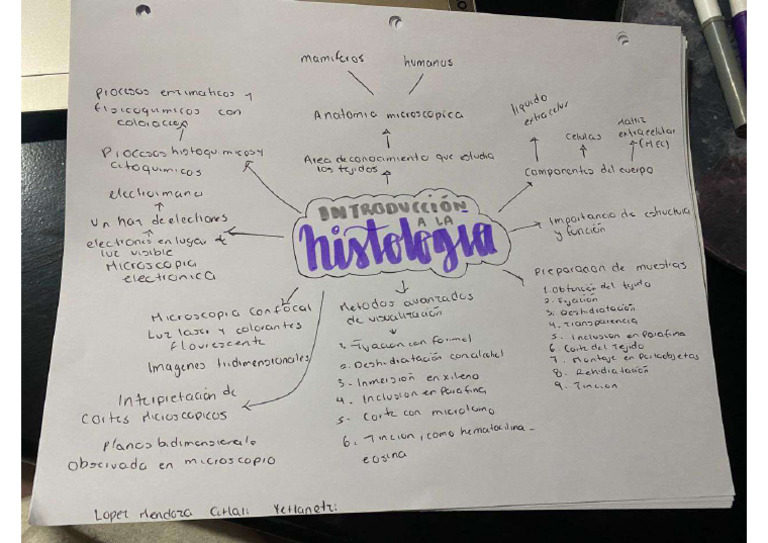 mamiferos
humanos
Anatomia microscopica
Area de conocimiento que estudia
los tejidos
INTRODUCCIÓN
A LA
histología
Procesos enzimaticos y
fisicoquimicos con
coloracion
Procesos histoquimicos y
citoquimicos
electroimano
un haz de electrones
electrones en lugar de
luz visible
Microscopia
electronica
Microscopia confocal
Luz laser y colorantes
flourescente
Imagenes tridimensionales
Interpretación de
Cortes Microscopicos
Planos bidimensional o
observada en microscopio
Metodos avanzados
de visualización
1. Fijacion con formol
2. Deshidratación con alcohol
3. Inmersión en xileno
4. Inclusion en Parafina
5. Corte con microtomo
6. Tincion, como hematoxilina -
eosina
liquido
extracelular
Celulas
Matriz
extracelular
(MEC)
Componentes del cuerpo
Importancia de estructura
y función
Preparacion de muestras
1. Obtención del tejido
2. Fijación
3. Deshidratación
4. Transparencia
5. Inclusion en Parafina
6. Corte del Tejido
7. Montaje en Portaobjetos
8. Rehidratación
9. Tincion
Lopez Mendoza Citlali Yetlanetzi